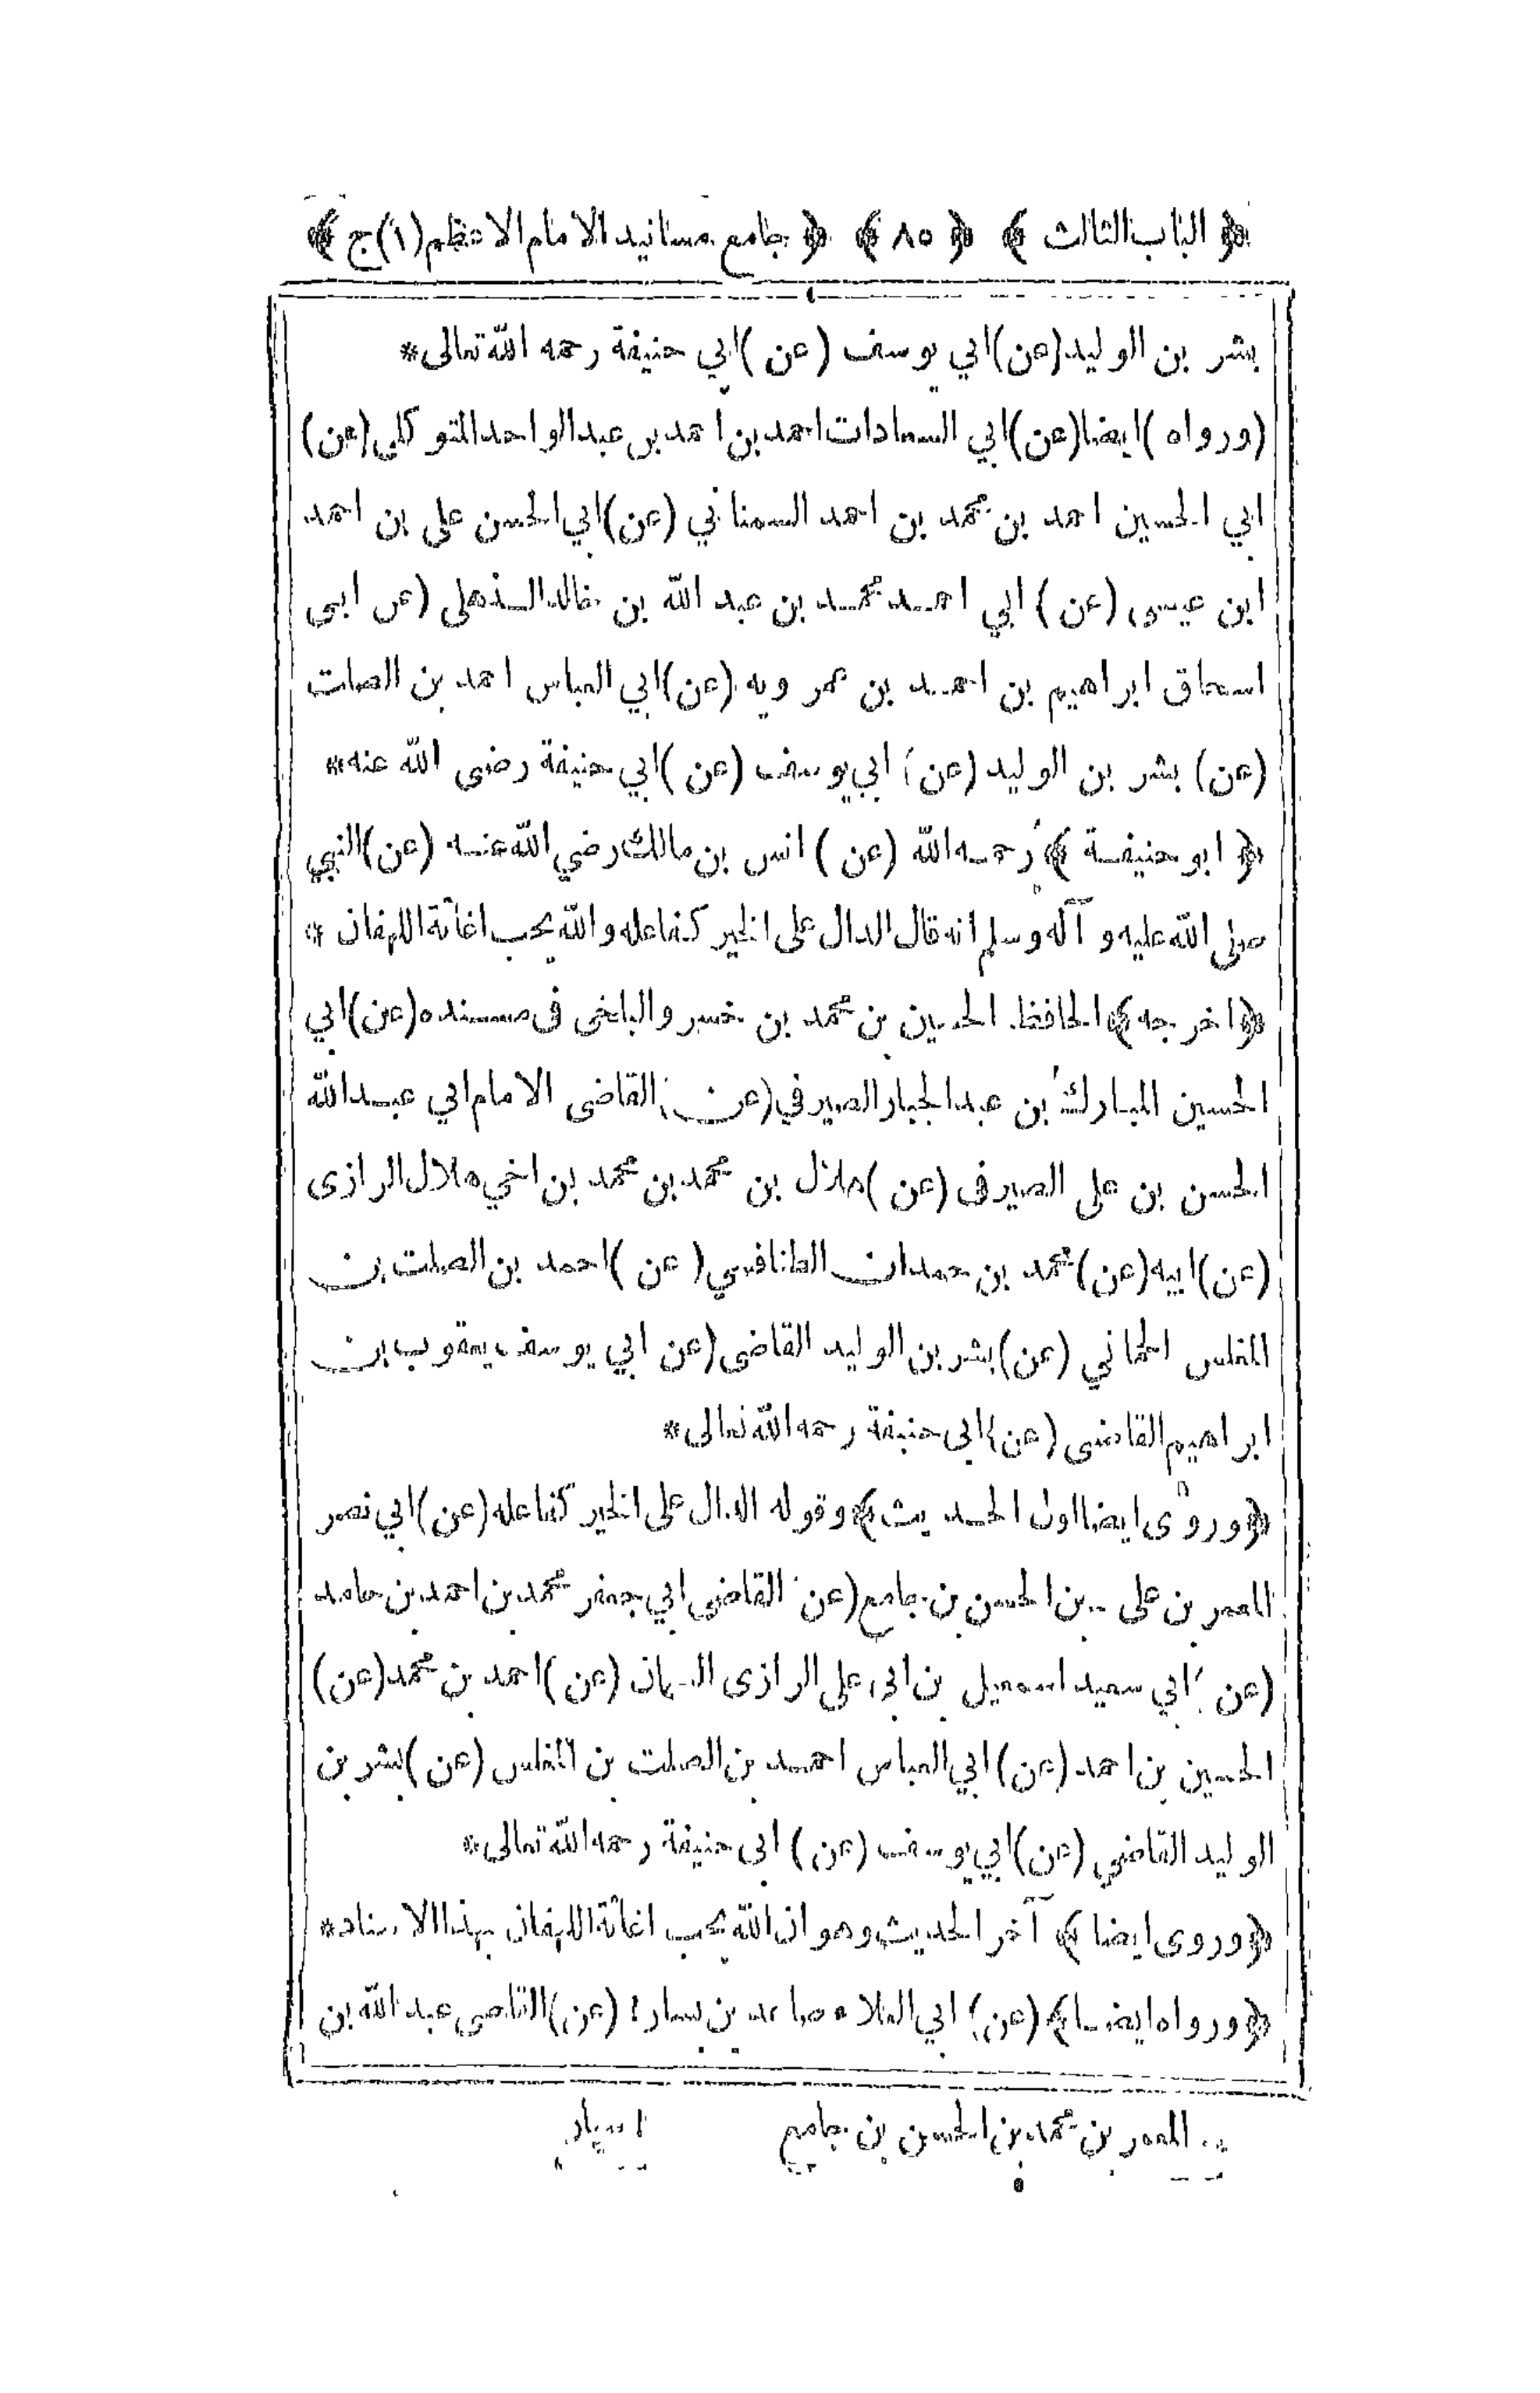 ﴿ الباب الثالث ﴾ ﴿ ٨٥ ﴾ ﴿ جامع مسانيد الامام الاعظم (١) ج ﴾
بشر بن الوليد (عن) ابي يوسف (عن) ابي حنيفة رحمه الله تعالى*
(ورواه) ايضا (عن) ابي السعادات احمد بن احمد بن عبد الواحد المتوكلي (عن)
ابي الحسين احمد بن محمد بن احمد السمناني (عن) ابي الحسن علي بن احمد
ابن عيسى (عن) ابي احمد محمد بن عبد الله بن خالد الذهلى (عن ابى
اسحاق ابراهيم بن احمد بن عمرويه (عن) ابي العباس احمد بن الصلت
(عن) بشر بن الوليد (عن) ابي يوسف (عن) ابي حنيفة رضى الله عنه*
﴿ ابو حنيفة ﴾ رحمه الله (عن) انس بن مالك رضي الله عنه (عن) النبي
صلى الله عليه و آله وسلم انه قال الدال على الخير كفاعله و الله يحب اغاثة اللهفان *
﴿ اخرجه ﴾ الحافظ الحسين بن محمد بن خسرو البلخى فى مسنده (عن) ابي
الحسين المبارك بن عبد الجبار الصيرفي (عن) القاضى الامام ابي عبد الله
الحسن بن على الصيرفى (عن) هلال بن محمد بن محمد بن اخي هلال الرازى
(عن) ابيه (عن) محمد بن حمدان الطنافسي (عن) احمد بن الصلت بن
المغلس الحماني (عن) بشر بن الوليد القاضى (عن ابي يوسف يعقوب بن
ابراهيم القاضى (عن) ابى حنيفة رحمه الله تعالى*
﴿ وروى ايضا اول الحديث ﴾ وقوله الدال على الخير كفاعله (عن) ابي نصر
المعمر بن على بن الحسن بن جامع (عن القاضى ابي جعفر محمد بن احمد بن حامد
(عن) ابي سعيد اسمعيل بن ابى على الرازى (عن) احمد بن محمد (عن)
الحسين بن احمد (عن) ابي العباس احمد بن الصلت بن المغلس (عن) بشر بن
الوليد القاضي (عن) ابي يوسف (عن) ابى حنيفة رحمه الله تعالى*
﴿ وروى ايضا ﴾ آخر الحديث وهو ان الله يحب اغاثة اللهفان بهذا الاسناد*
﴿ ورواه ايضا ﴾ (عن) ابي العلاء صاعد بن يسار١ (عن) القاضى عبد الله بن
المعمر بن محمد بن الحسن بن جامع
١ سيار